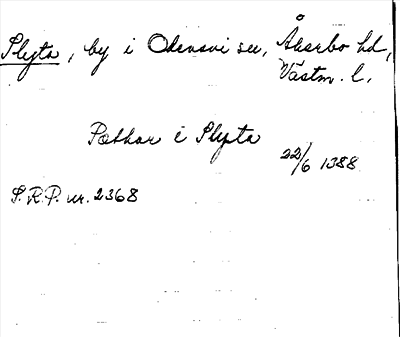 Slyta, by i Odensvi sn, Åkerbo hd,
Västm. l.
Pæthar i Slyta
22/6 1388
S.R.P. nr. 2368